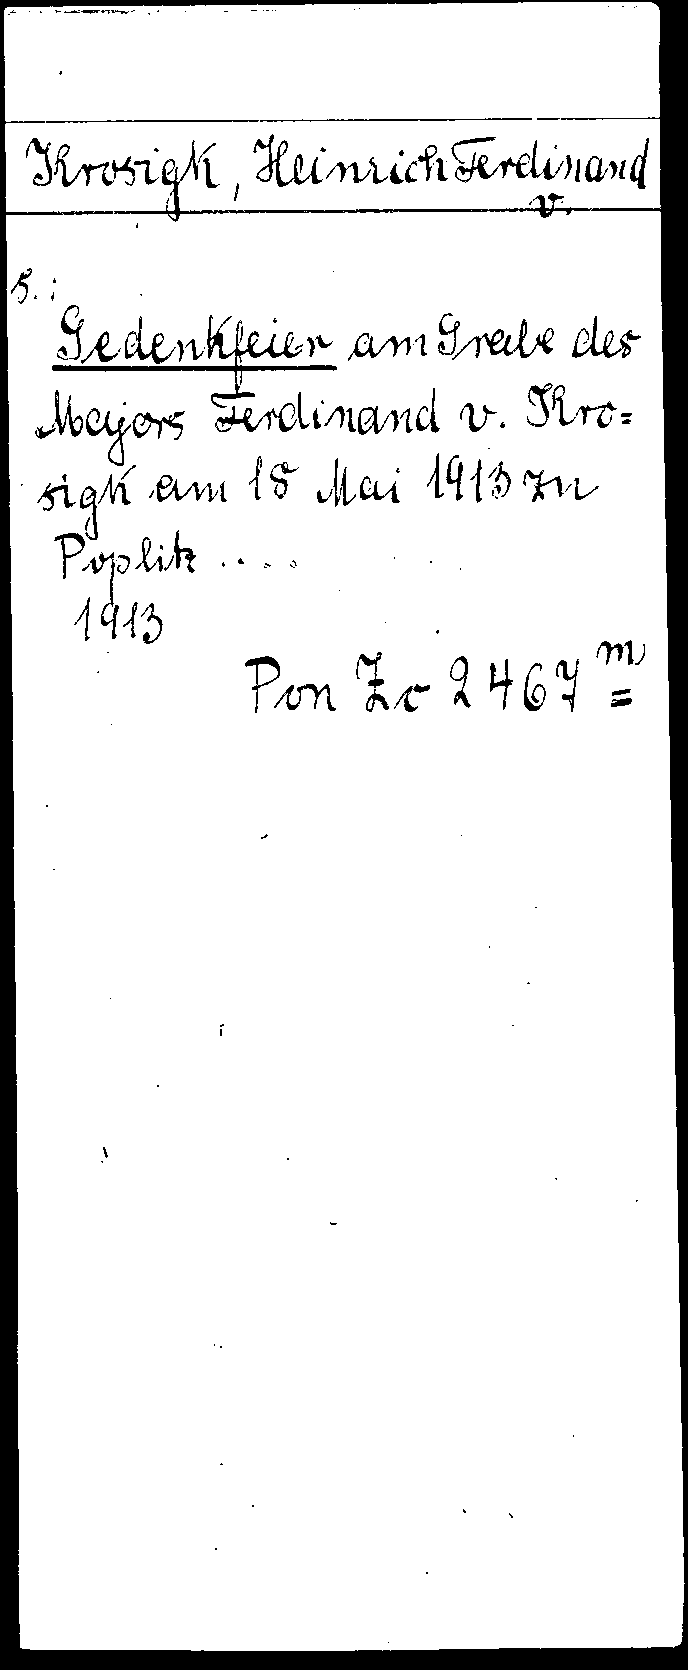 Krosigk, Heinrich Ferdinand
v.
s.:
Gedenkfeier am Grabe des
Majors Ferdinand v. Kro=
sigk am 18 Mai 1913 zu
Poplitz ....
1913
Pon Zc 2467 m